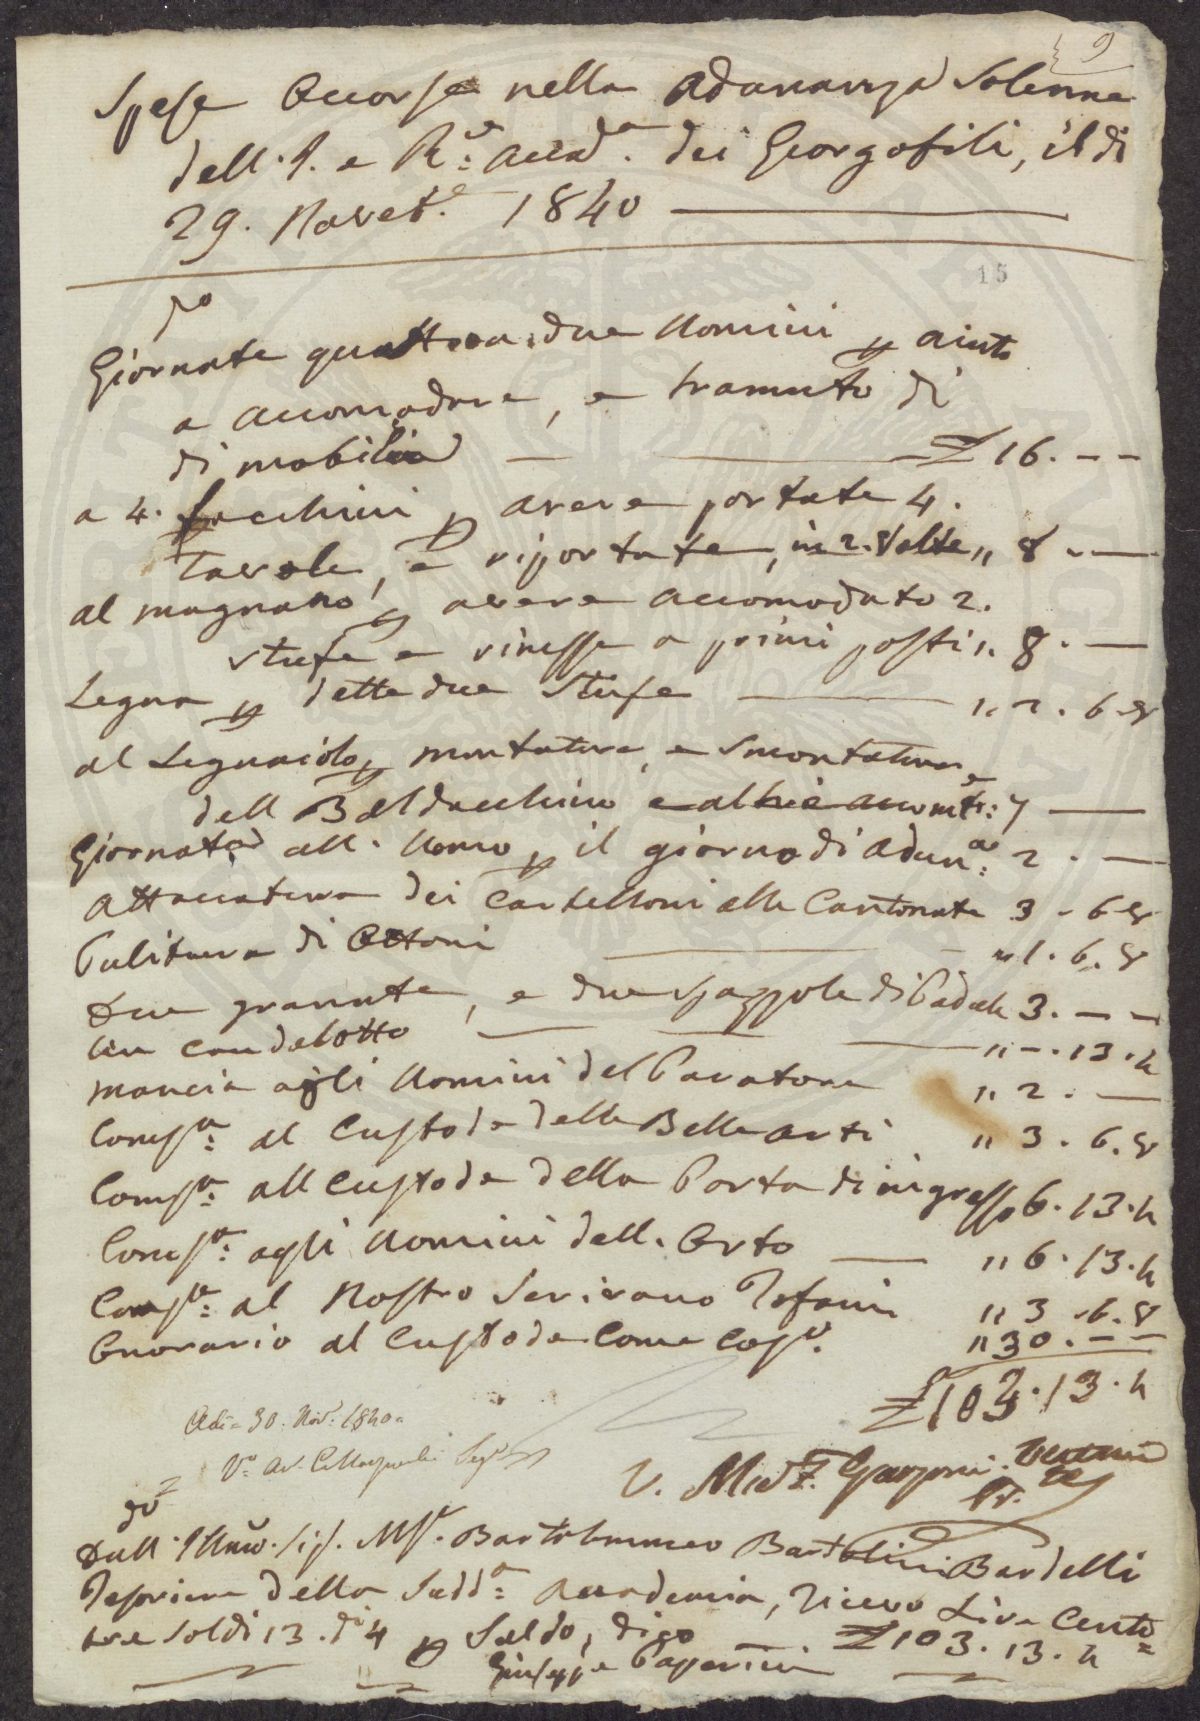 9
Spese Occorse nella Adunanza Solenne
dell'I. e R.e Accad.a dei Georgofili, il di
29. Novet.e 1840
15
Giornate quattro a due Uomini p aiuto
a accomodare, e tramuto di
di mobilia £ 16. - -
a 4. facchini p avere portate 4.
Tavole, e riportate, in 2. Volte „ 8 . -
al magnano p avere accomodato 2.
stufe e rimesse a primi posti „ 8 . -
Legna p dette due Stufe „ 2 . 6 . 8
al Legnaiolo p montatura, e smontatura
dell Baldacchino e altri accomti: 7 -
Giornata all. Uomo p il giorno di Adun.a: 2 . -
Attaccatura dei Cartelloni alle Cantonate 3 . 6 . 8
Pulitura di Ottoni „ 1 . 6 . 8
Due granate, e due spazzole di Padule 3 . - -
Un candelotto „ - . 13 . 4
mancia agli Uomini del Paratore „ 2 . -
Comp.a: al Custode delle Belle Arti „ 3 . 6 . 8
Comp.a: all Custode della Porta di ingresso 6 . 13 . 4
Comp.a: agli Uomini dell. Orto „ 6 . 13 . 4
Comp.a: al Nostro Scrivano Tofani „ 3 . 6 . 8
Onorario al Custode Come Cos.o „ 30 . - -
£ 103 . 13 . 4
Adi = 30. Nov.e 1840
V.o Av. Segr.
V. March. Garzoni. Venturi
Pr.
Dall'Illmo. Sig. M.e Bartolommeo Bartolini Bardelli
Tesoriere della Sudd.a Accademia, ricevo Lire Cento
tre Soldi 13. di 4 p Saldo, dico £ 103 . 13 . 4
Giuseppe Papperini